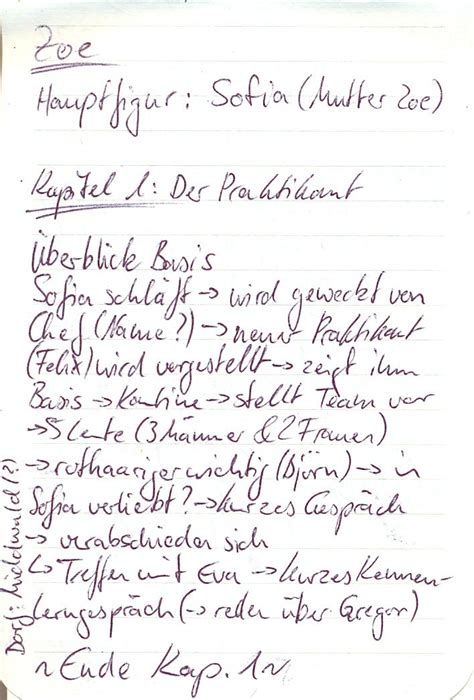 Zoe
Hauptfigur: Sofia (Mutter Zoe)
Kapitel 1: Der Praktikant
Überblick Basis
Sofia schläft → wird geweckt von
Chef (Name?) → neuer Praktikant
(Felix) wird vorgestellt → zeigt ihm
Basis → Kantine → stellt Team vor
→ 5 Leute (3 Männer & 2 Frauen)
→ rothaariger wichtig (Björn) → in
Sofia verliebt? → kurzes Gespräch
→ verabschieden sich
↳ Treffen mit Eva → kurzes Kennen-
lerngespräch (→ reden über Gregor)
~ Ende Kap. 1 ~
Dorf: (?)